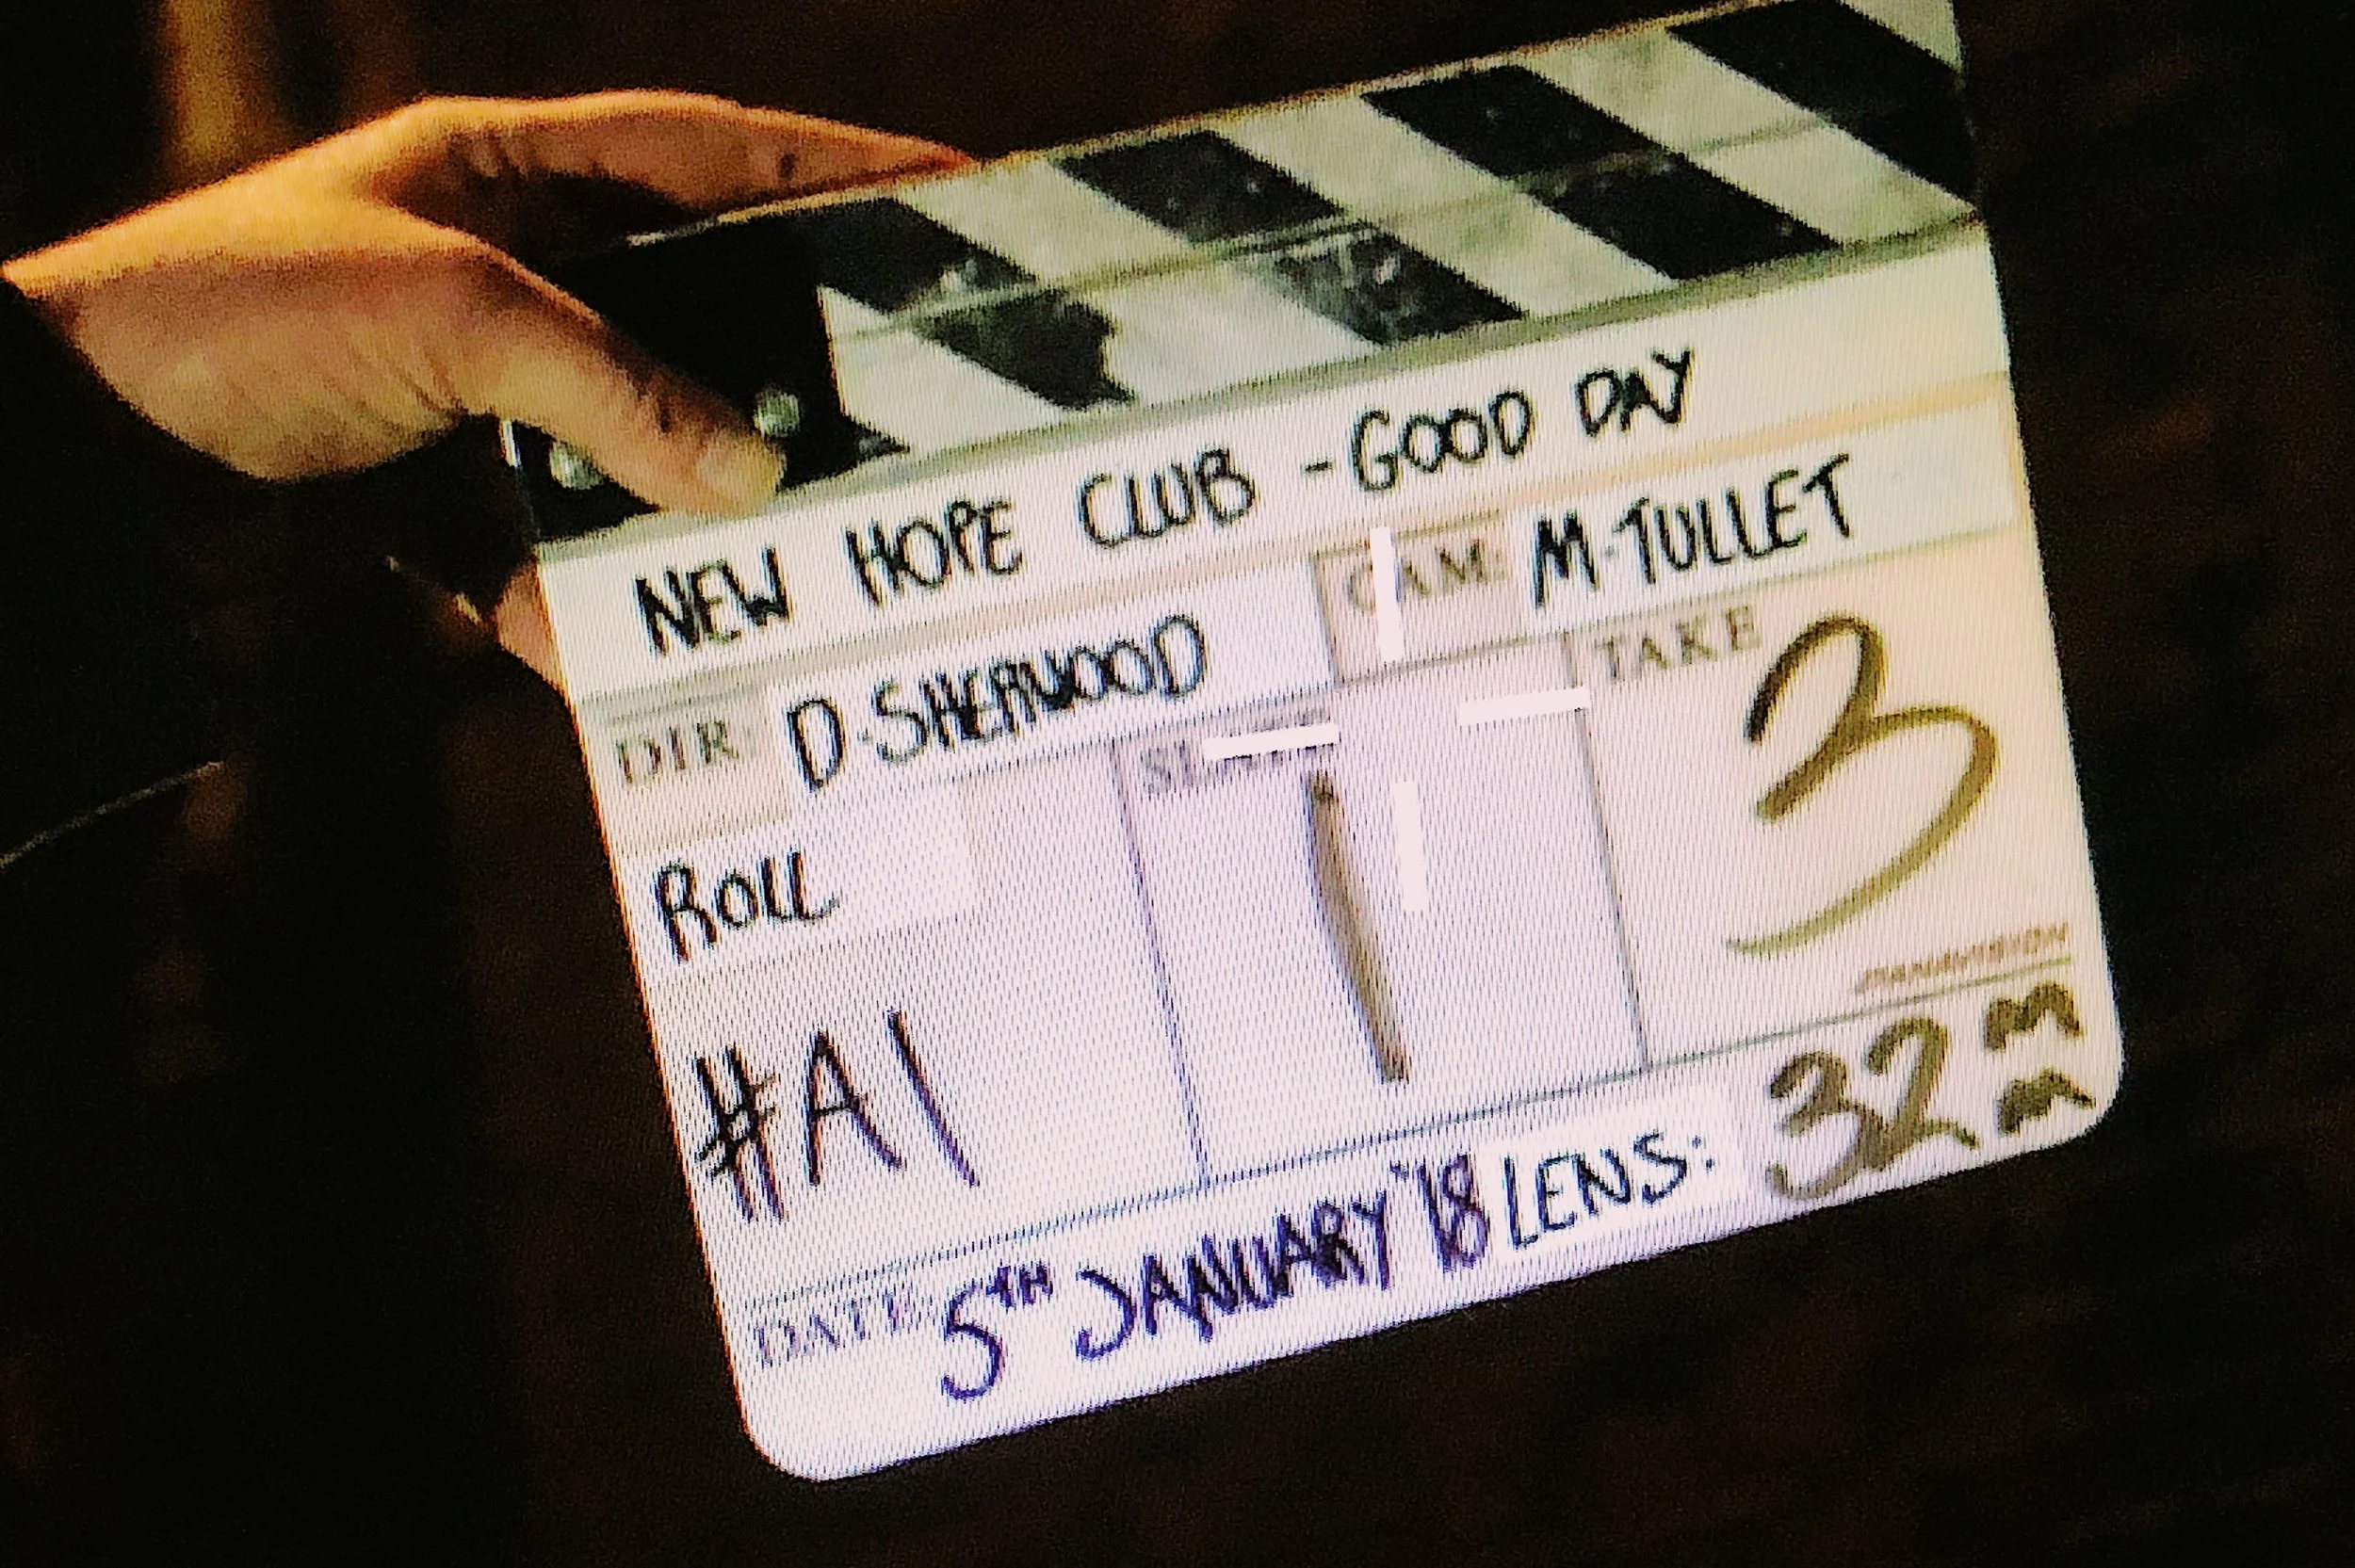 NEW HOPE CLUB - GOOD DAY
DIR: D·SHERWOOD CAM: M·TULLET
ROLL SLATE TAKE
#A1 1 3
PANAVISION
DATE 5TH JANUARY '18 LENS: 32mm